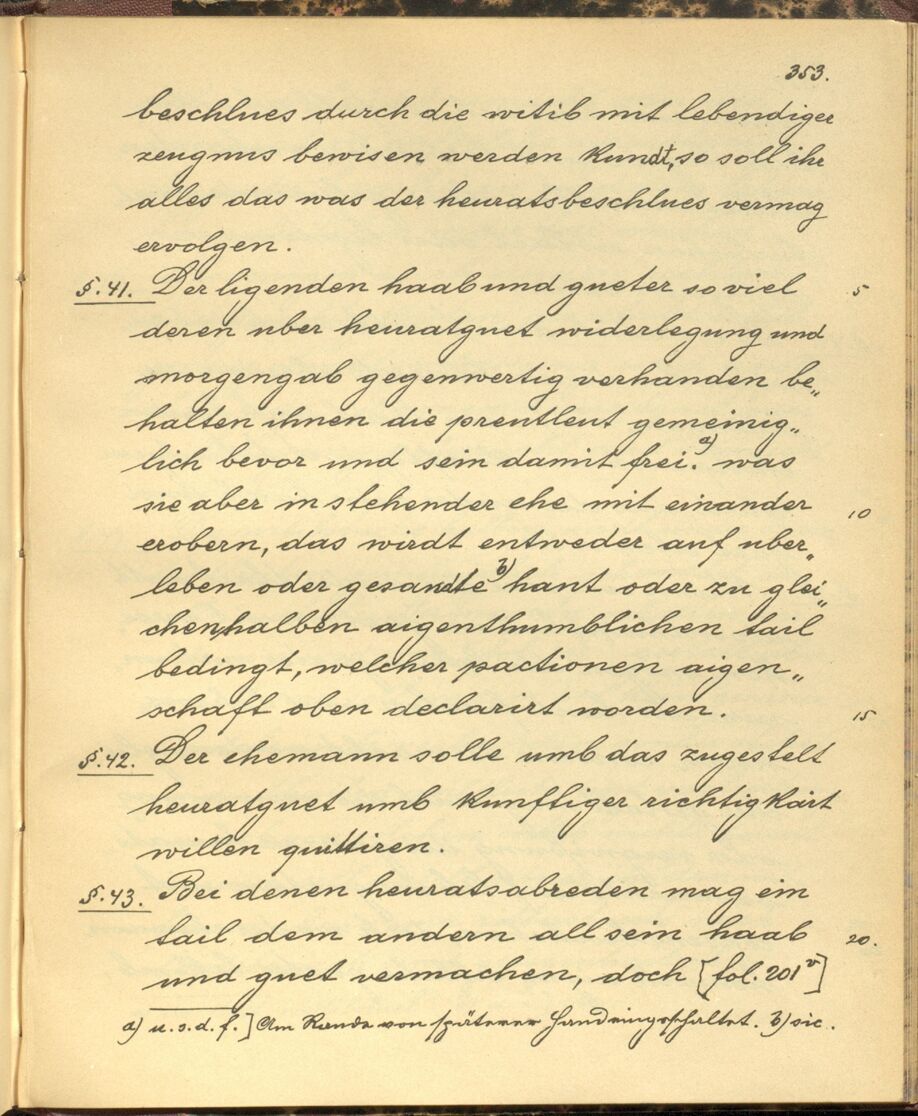 353.
beschlues durch die witib mit lebendiger
zeugnus bewisen werden kundt, so soll ihr
alles das was der heuratsbeschlues vermag
ervolgen.
§. 41. Der ligenden haab und gueter so viel 5
deren uber heuratguet widerlegung und
morgengab gegenwertig verhanden be„
halten ihnen die prentleut gemeinig„
lich bevor und sein damit frei. a) was
sie aber in stehender ehe mit einander 10
erobern, das wirdt entweder auf uber„
leben oder gesandte b) hant oder zu glei„
chen halben aigenthumblichen tail
bedingt, welcher pactionen aigen„
schaft oben declarirt worden. 15
§. 42. Der ehemann solle umb das zugestelt
heuratguet umb kunftiger richtigkait
willen quittiren.
§. 43. Bei denen heuratsabreden mag ein
tail dem andern all sein haab 20.
und guet vermachen, doch [fol. 201v]
a) u. s. d. f.] Am Rande von späterer Hand eingeschaltet. b) sic.